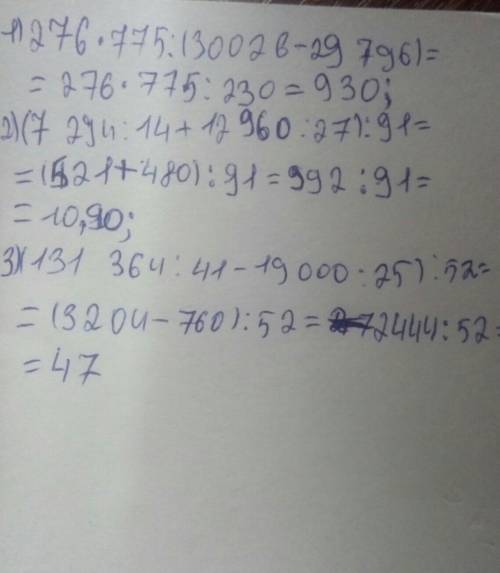 1) 276·775:(30026-29 796)=
= 276·775:230=930;
2)(7 294:14+12 960:27):91=
=(521+480):91=992:91=
= 10,90;
3)(131 364:41-19000:25):52=
= (3204-760):52= 2444:52=
= 47